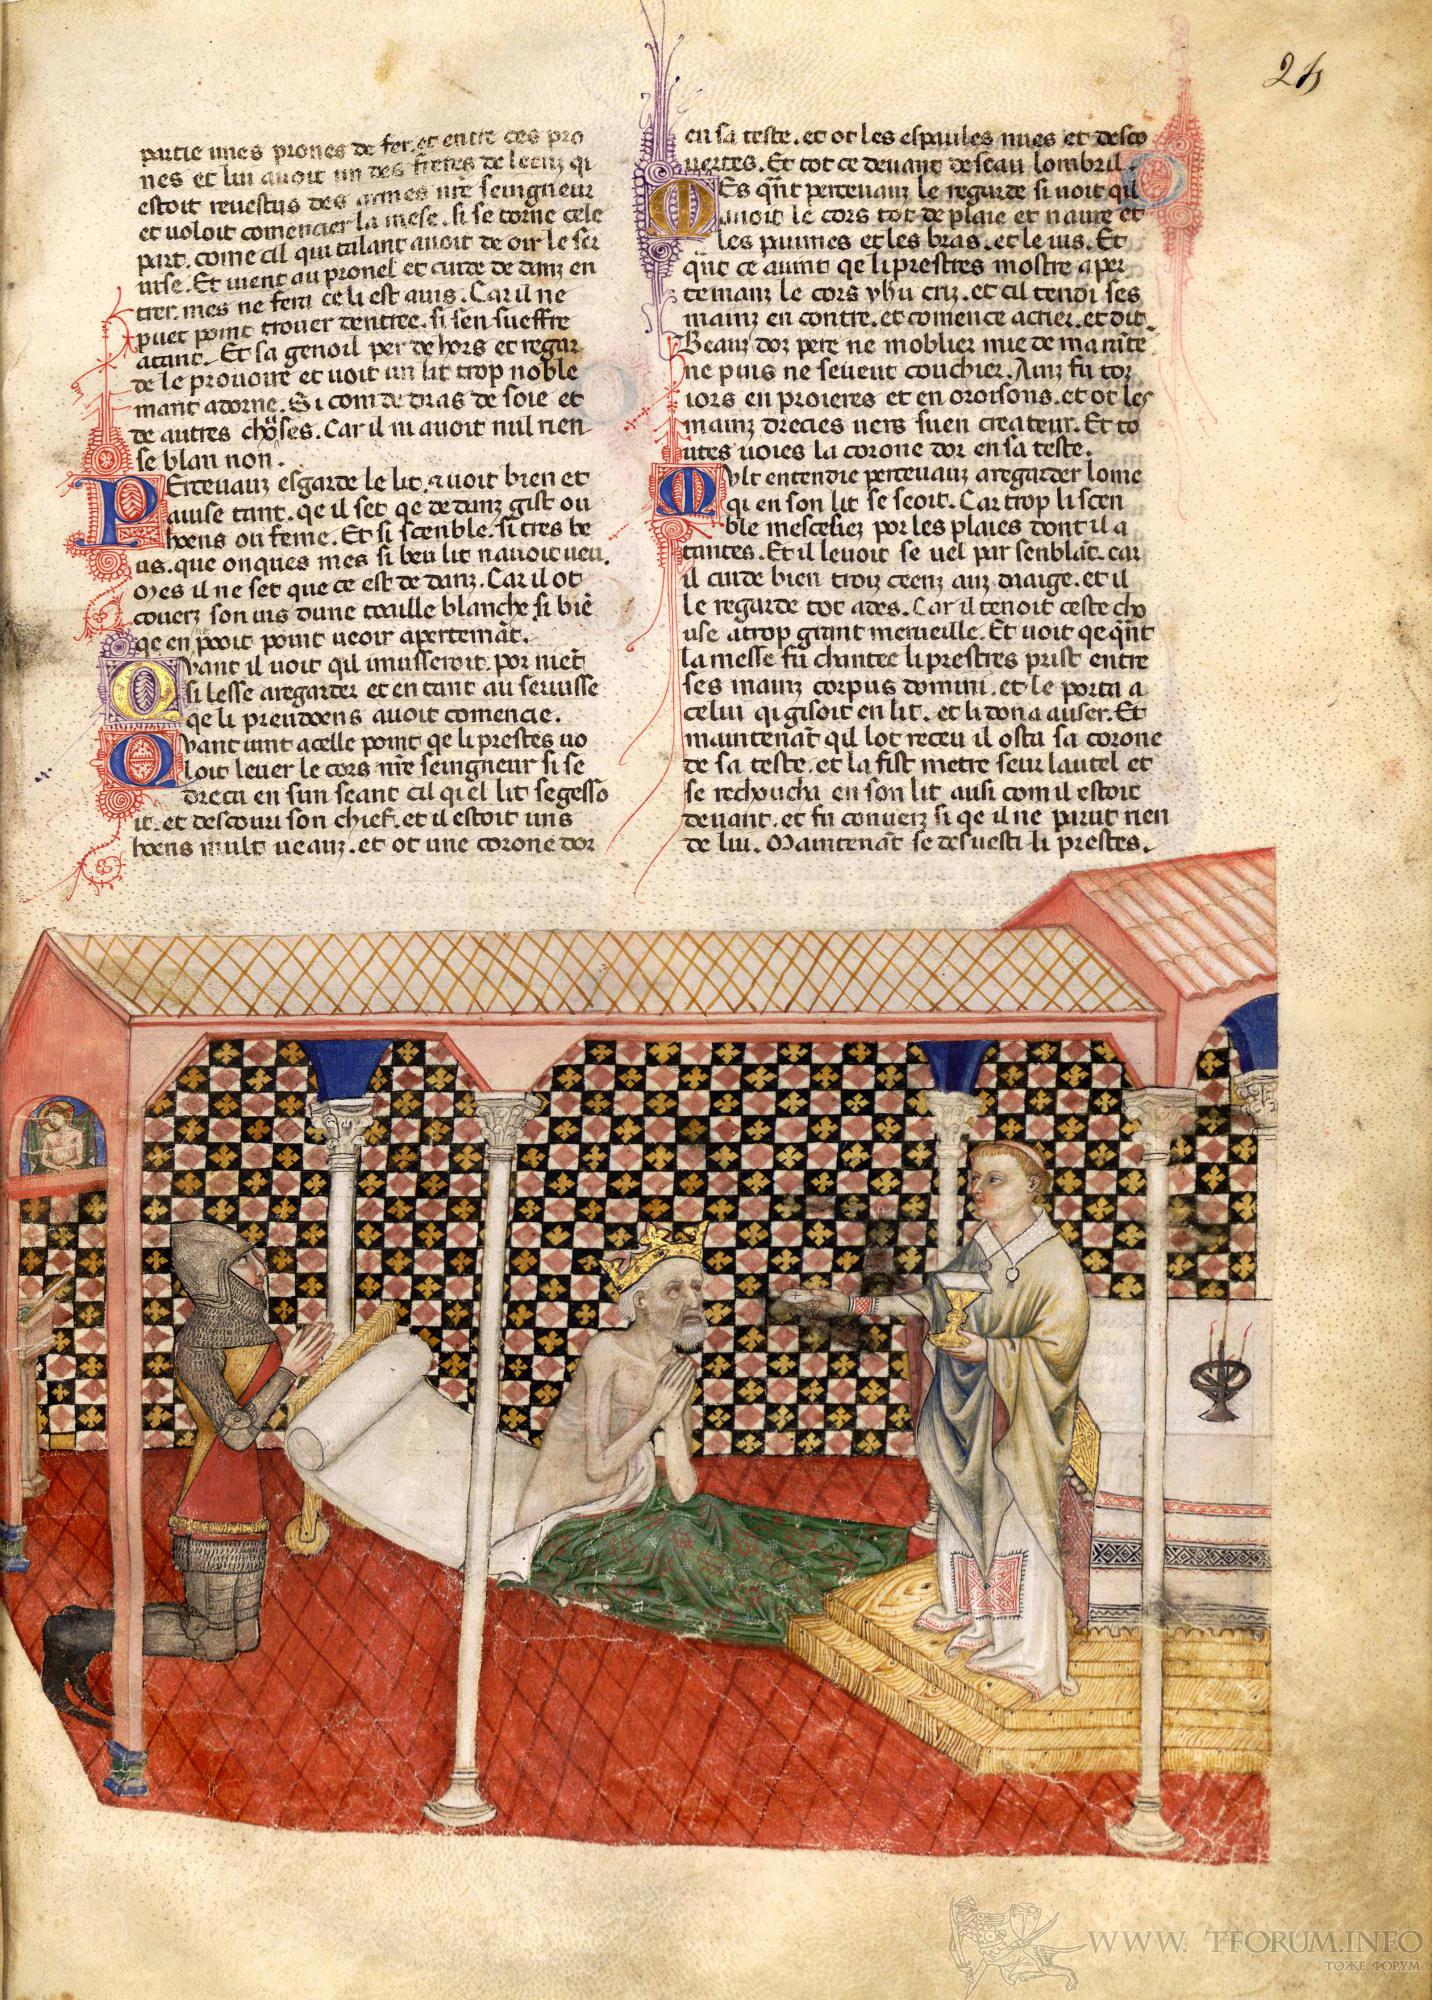 24
partie unes prones de fer. et entre ces pro
nes et lui auoit un des freres de leenz qi
estoit reuestus des armes nre seingneur
et uoloit comencier la mese. si se torne cele
part. come cil qui talant auoit de oir le ser
uise. Et uient au pronel et cuide dedanz en
trer. mes ne fera ce li est auis. Car il ne
puet point trouer dentree. si sen sueffre
atant. Et sa genoil per dehors et regar
de le prouoire et uoit un lit trop noble
mant adorne. Si com de dras de soie et
de autres choses. Car il ni auoit nul rien
se blan non.
Perceuaus esgarde le lit. & uoit bien et
auise tant. qe il set qe dedanz gist ou
hoens ou feme. Et si scenble. si tres be
us. que onques mes si beu lit nauoit ueu.
Mes il ne set que ce est dedanz. Car il ot
couerz son uis dune touille blanche si biē
qe en pooit point ueoir apertemāt.
Quant il uoit qil imusseroit por niet
si lesse aregarder et entant au seruisse
qe li preudoens auoit comencie.
Quant uint acelle point qe li prestes uo
loit leuer le cors nr̄e seingneur si se
dreca en sun seant cil qi el lit segesso
it. et descouri son chief. et il estoit uns
hoens mult ueauz. et ot une corone dor
en sa teste. et ot les espaules nues et desco
uertes. Et tot ce deuant deseau lombril.
Mes qn̄t perceuauz le regarde si uoit qil
auoit le cors tot de plaie et naure et
les paumes et les bras. et le uis. Et
qn̄t ce auint qe li prestres mostre aper
temanz le cors yhu criz. et cil tendi ses
mainz en contre. et comence acrier. et dit
Beauz doz pere ne moblier mie de ma rn̄te
ne puis ne seuent couchier. Ainz fu toz
iors en proieres et en oroisons. et ot les
mainz drecies uers suen createur. Et to
utes uoies la corone dor en sa teste.
Mvlt entendie perceuauz aregarder lome
qi en son lit se seoit. Car trop li scen
ble mesesiez por les plaies dont il a
tantes. Et il leuoit se uel par senblāt. car
il cuide bien troiz cenz anz daaige. et il
le regarde tot ades. Car il tenoit ceste cho
use atrop grant merueille. Et uoit qe qn̄t
la messe fu chantee li prestres prist entre
ses mainz corpus domini. et le porta a
celui qi gisoit en lit. et li dona auser. Et
maintenāt qil lot receu il osta sa corone
de sa teste. et la fist metre seur lautel et
se rechoucha en son lit ausi com il estoit
deuant. et fu couerz si qe il ne parut rien
de lui. Maintenāt se desuesti li prestes.
WWW. TFORUM.INFO
ТОЖЕ ФОРУМ